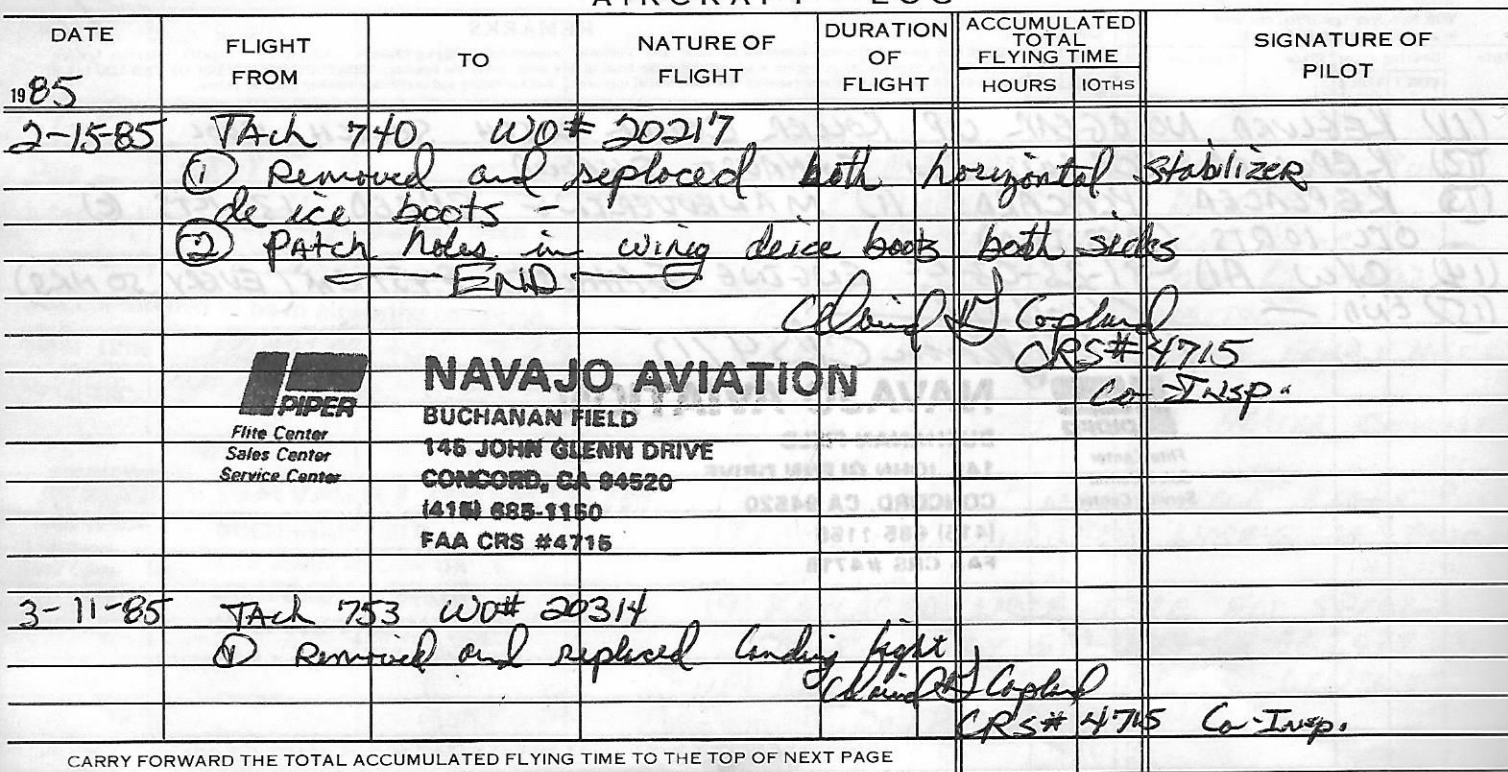 AIRCRAFT LOG
DATE
1985
FLIGHT FROM
TO
NATURE OF FLIGHT
DURATION OF FLIGHT
ACCUMULATED TOTAL FLYING TIME
HOURS
10THS
SIGNATURE OF PILOT
2-15-85 TAch 740 WO# 20217
① Removed and replaced both horizontal stabilizer
de ice boots -
② PAtch holes in wing deice boots both sides
END
Copland
CRS# 4715
Co-Insp.
PIPER
Flite Center
Sales Center
Service Center
NAVAJO AVIATION
BUCHANAN FIELD
145 JOHN GLENN DRIVE
CONCORD, CA 94520
(415) 685-1150
FAA CRS #4715
3-11-85 TAch 753 WO# 20314
① Removed and replaced landing light
Copland
CRS# 4715 Co-Insp.
CARRY FORWARD THE TOTAL ACCUMULATED FLYING TIME TO THE TOP OF NEXT PAGE